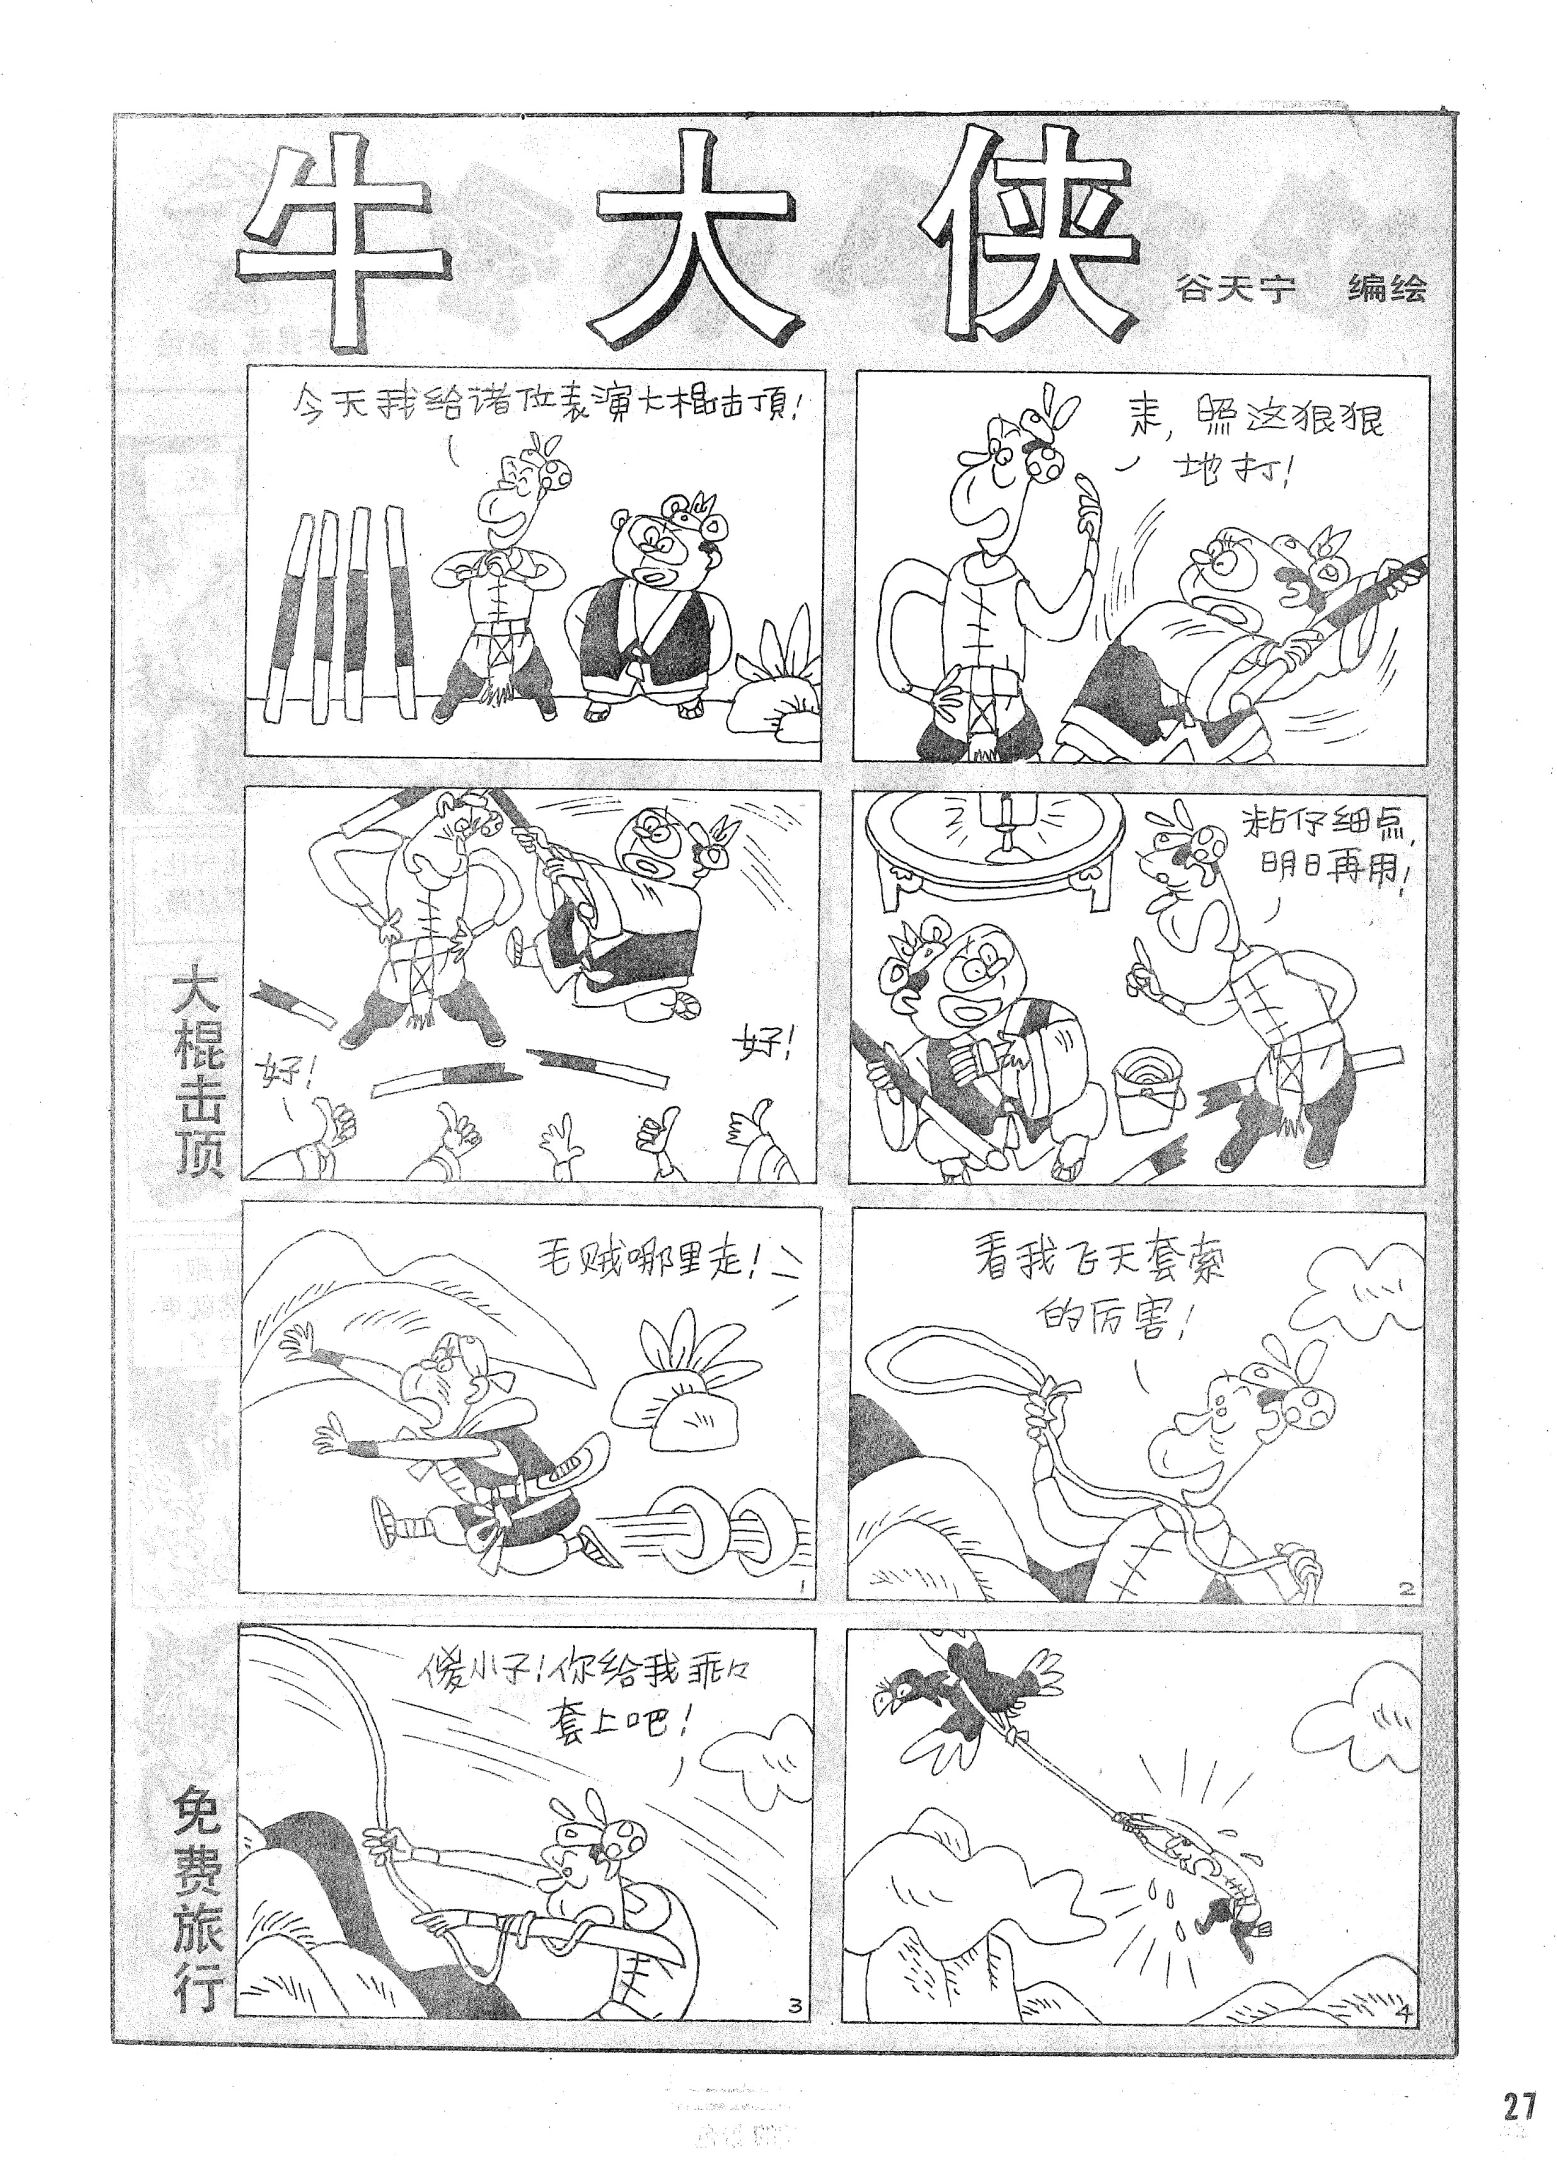 牛大侠
谷天宁 编绘
大棍击顶
今天我给诸位表演大棍击顶!
来,照这狠狠
地打!
好!
好!
粘仔细点,
明日再用!
免费旅行
毛贼哪里走!
1
看我飞天套索
的厉害!
2
傻小子!你给我乖々
套上吧!
3
4
27